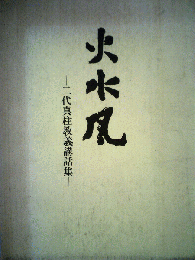 火水風
—二代真柱教義講話集—